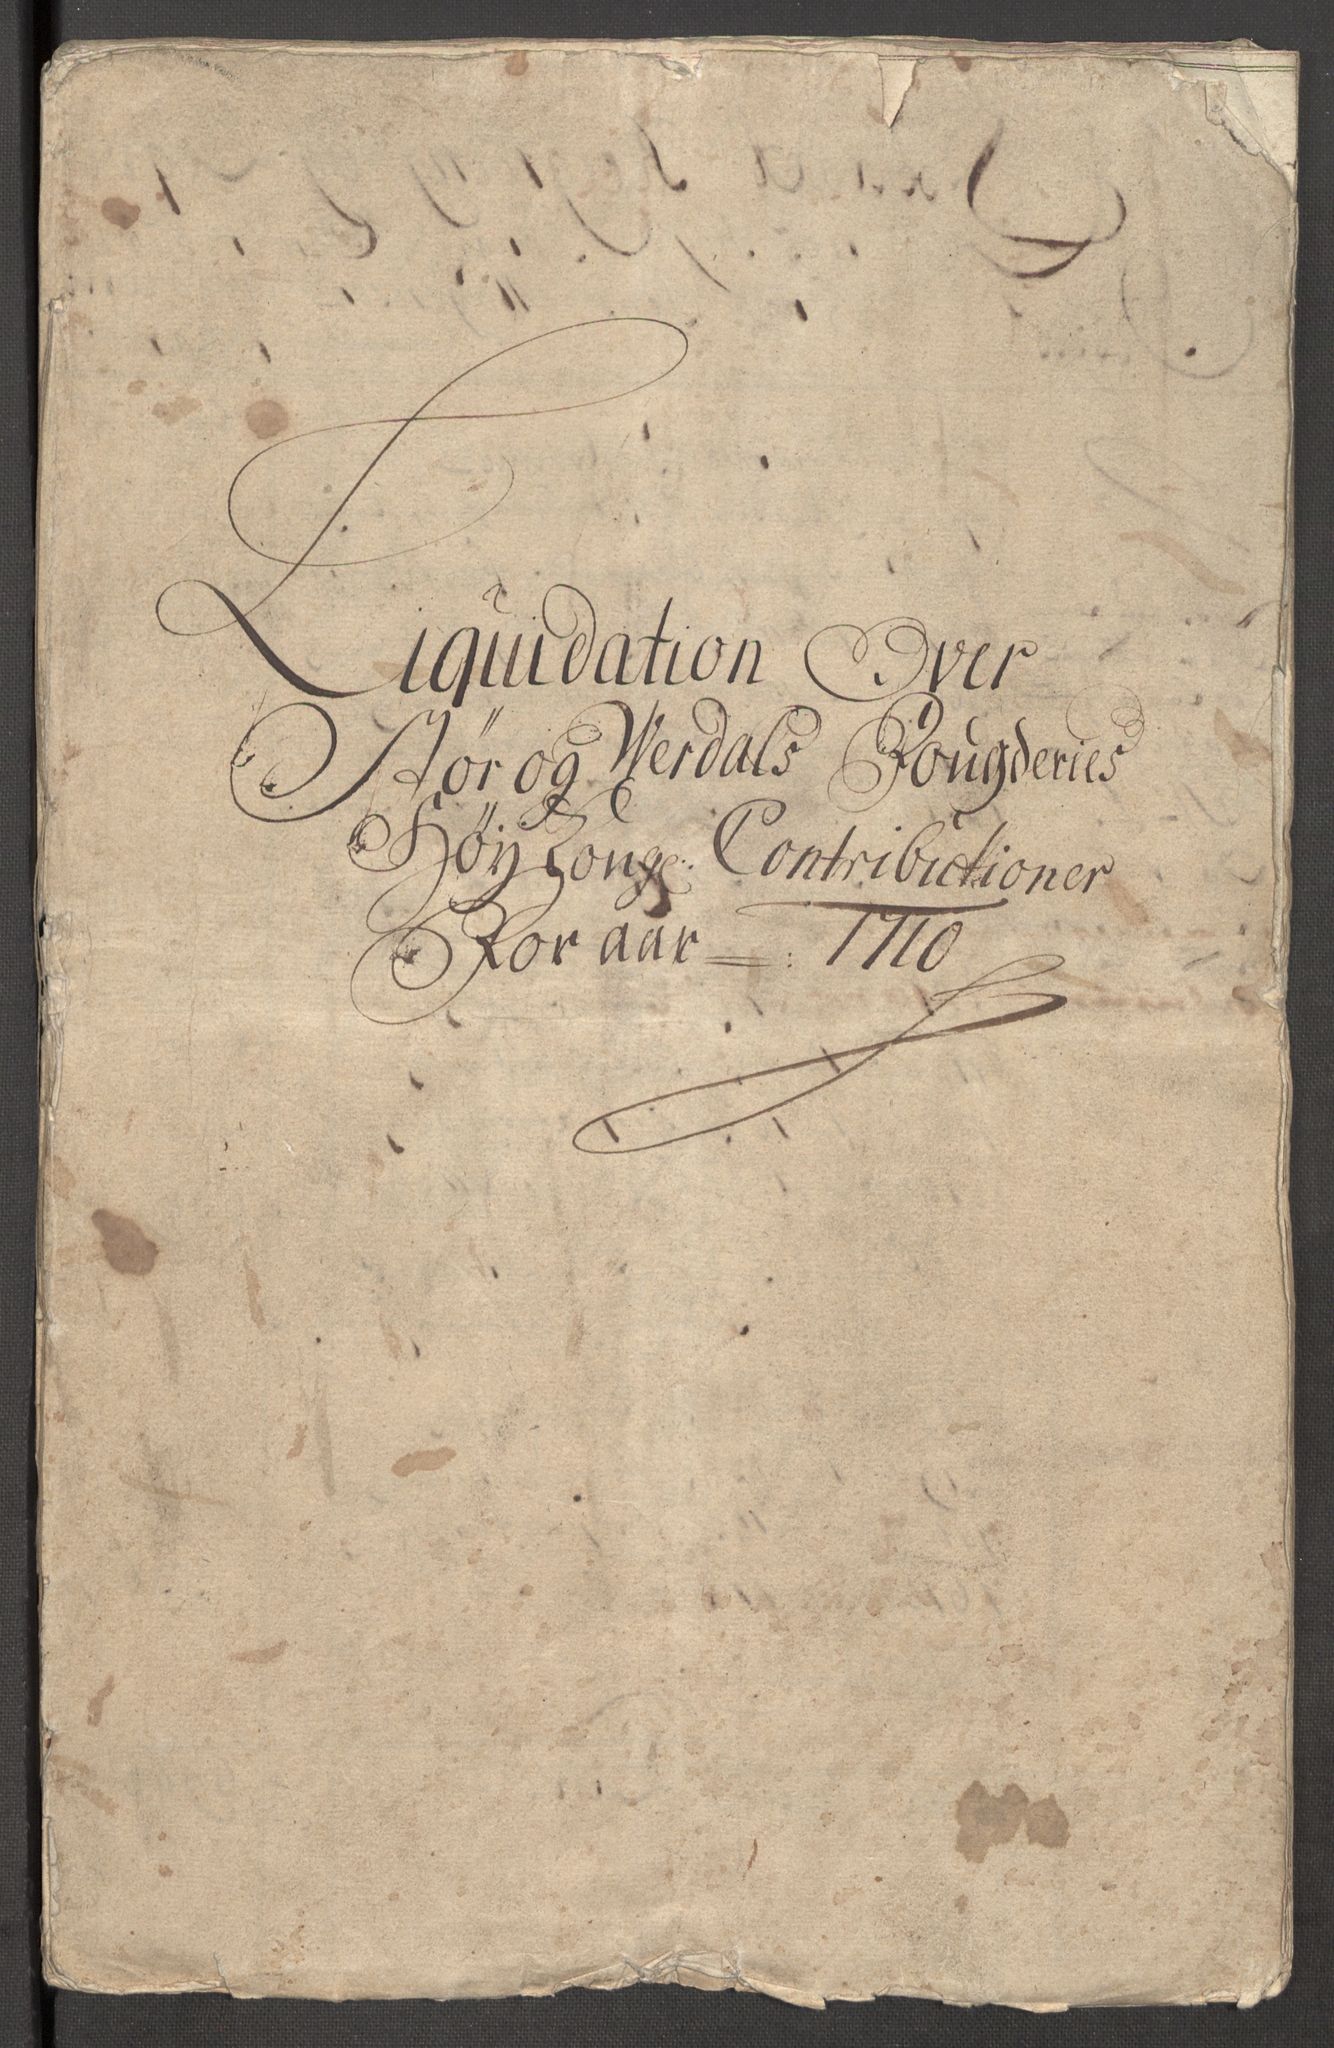 Liquidation Over
Stør og Werdals Fougderies
Høy Tonge: Contributioner
For aar = : 1710